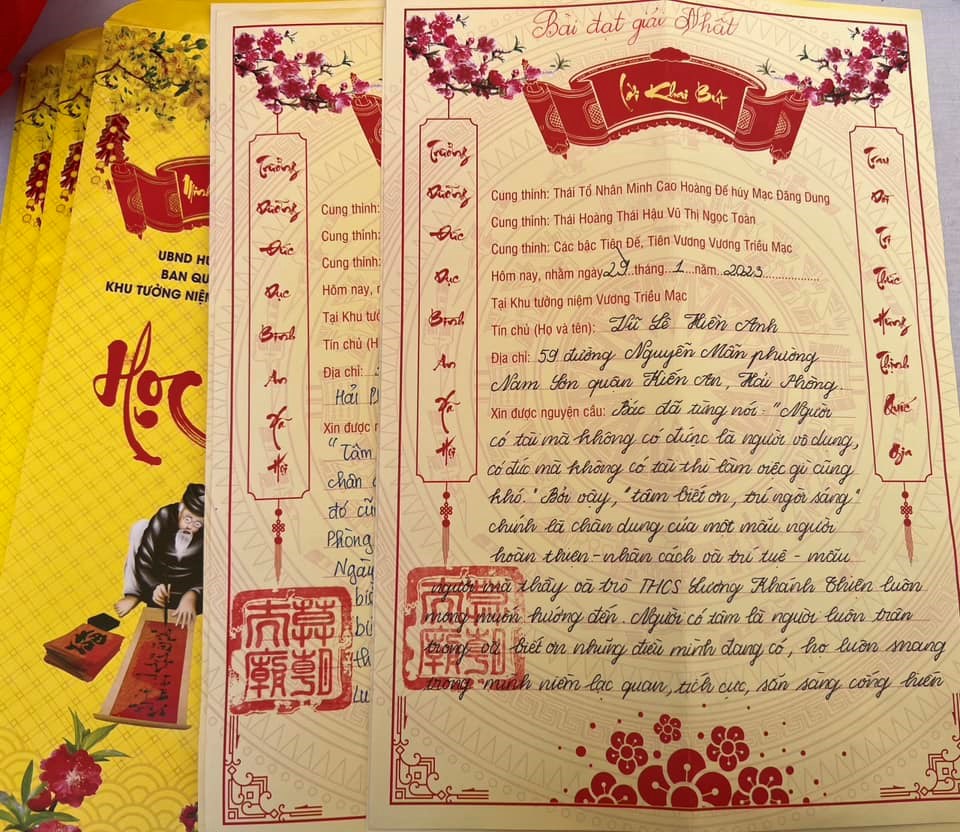 Bài đạt giải Nhất
Lời Khai Bút
Trưởng
Dưỡng
Đức
Dục
Bình
An
Xã
Hội
Trau
Dồi
Tri
Thức
Hưng
Thịnh
Quốc
Gia
Cung thỉnh: Thái Tổ Nhân Minh Cao Hoàng Đế húy Mạc Đăng Dung
Cung thỉnh: Thái Hoàng Thái Hậu Vũ Thị Ngọc Toàn
Cung thỉnh: Các bậc Tiên Đế, Tiên Vương Vương Triều Mạc
Hôm nay, nhằm ngày 29 tháng 1 năm 2023
Tại Khu tưởng niệm Vương Triều Mạc
Tín chủ (Họ và tên): Vũ Lê Hiền Anh
Địa chỉ: 59 đường Nguyễn Mẫn phường
Nam Sơn quận Kiến An, Hải Phòng.
Xin được nguyện cầu: Bác đã từng nói: "Người
có tài mà không có đức là người vô dụng,
có đức mà không có tài thì làm việc gì cũng
khó." Bởi vậy, "tâm biết ơn, trí ngời sáng"
chính là chân dung của một mẫu người
hoàn thiện - nhân cách và trí tuệ - mẫu
người mà thầy và trò THCS Lương Khánh Thiện luôn
mong muốn hướng đến. Người có tâm là người luôn trân
trọng và biết ơn những điều mình đang có, họ luôn mang
trong mình niềm lạc quan, tích cực, sẵn sàng cống hiến
Trưởng
Dưỡng
Đức
Dục
Bình
An
Xã
Hội
Cung thỉnh:
Cung thỉnh:
Cung thỉnh:
Hôm nay, n
Tại Khu tưở
Tín chủ (H
Địa chỉ:
Hải Ph
Xin được n
"Tâm
chân
đó cũ
Phòng
Ngày
UBND HU
BAN QU
KHU TƯỞNG NIỆM
Học